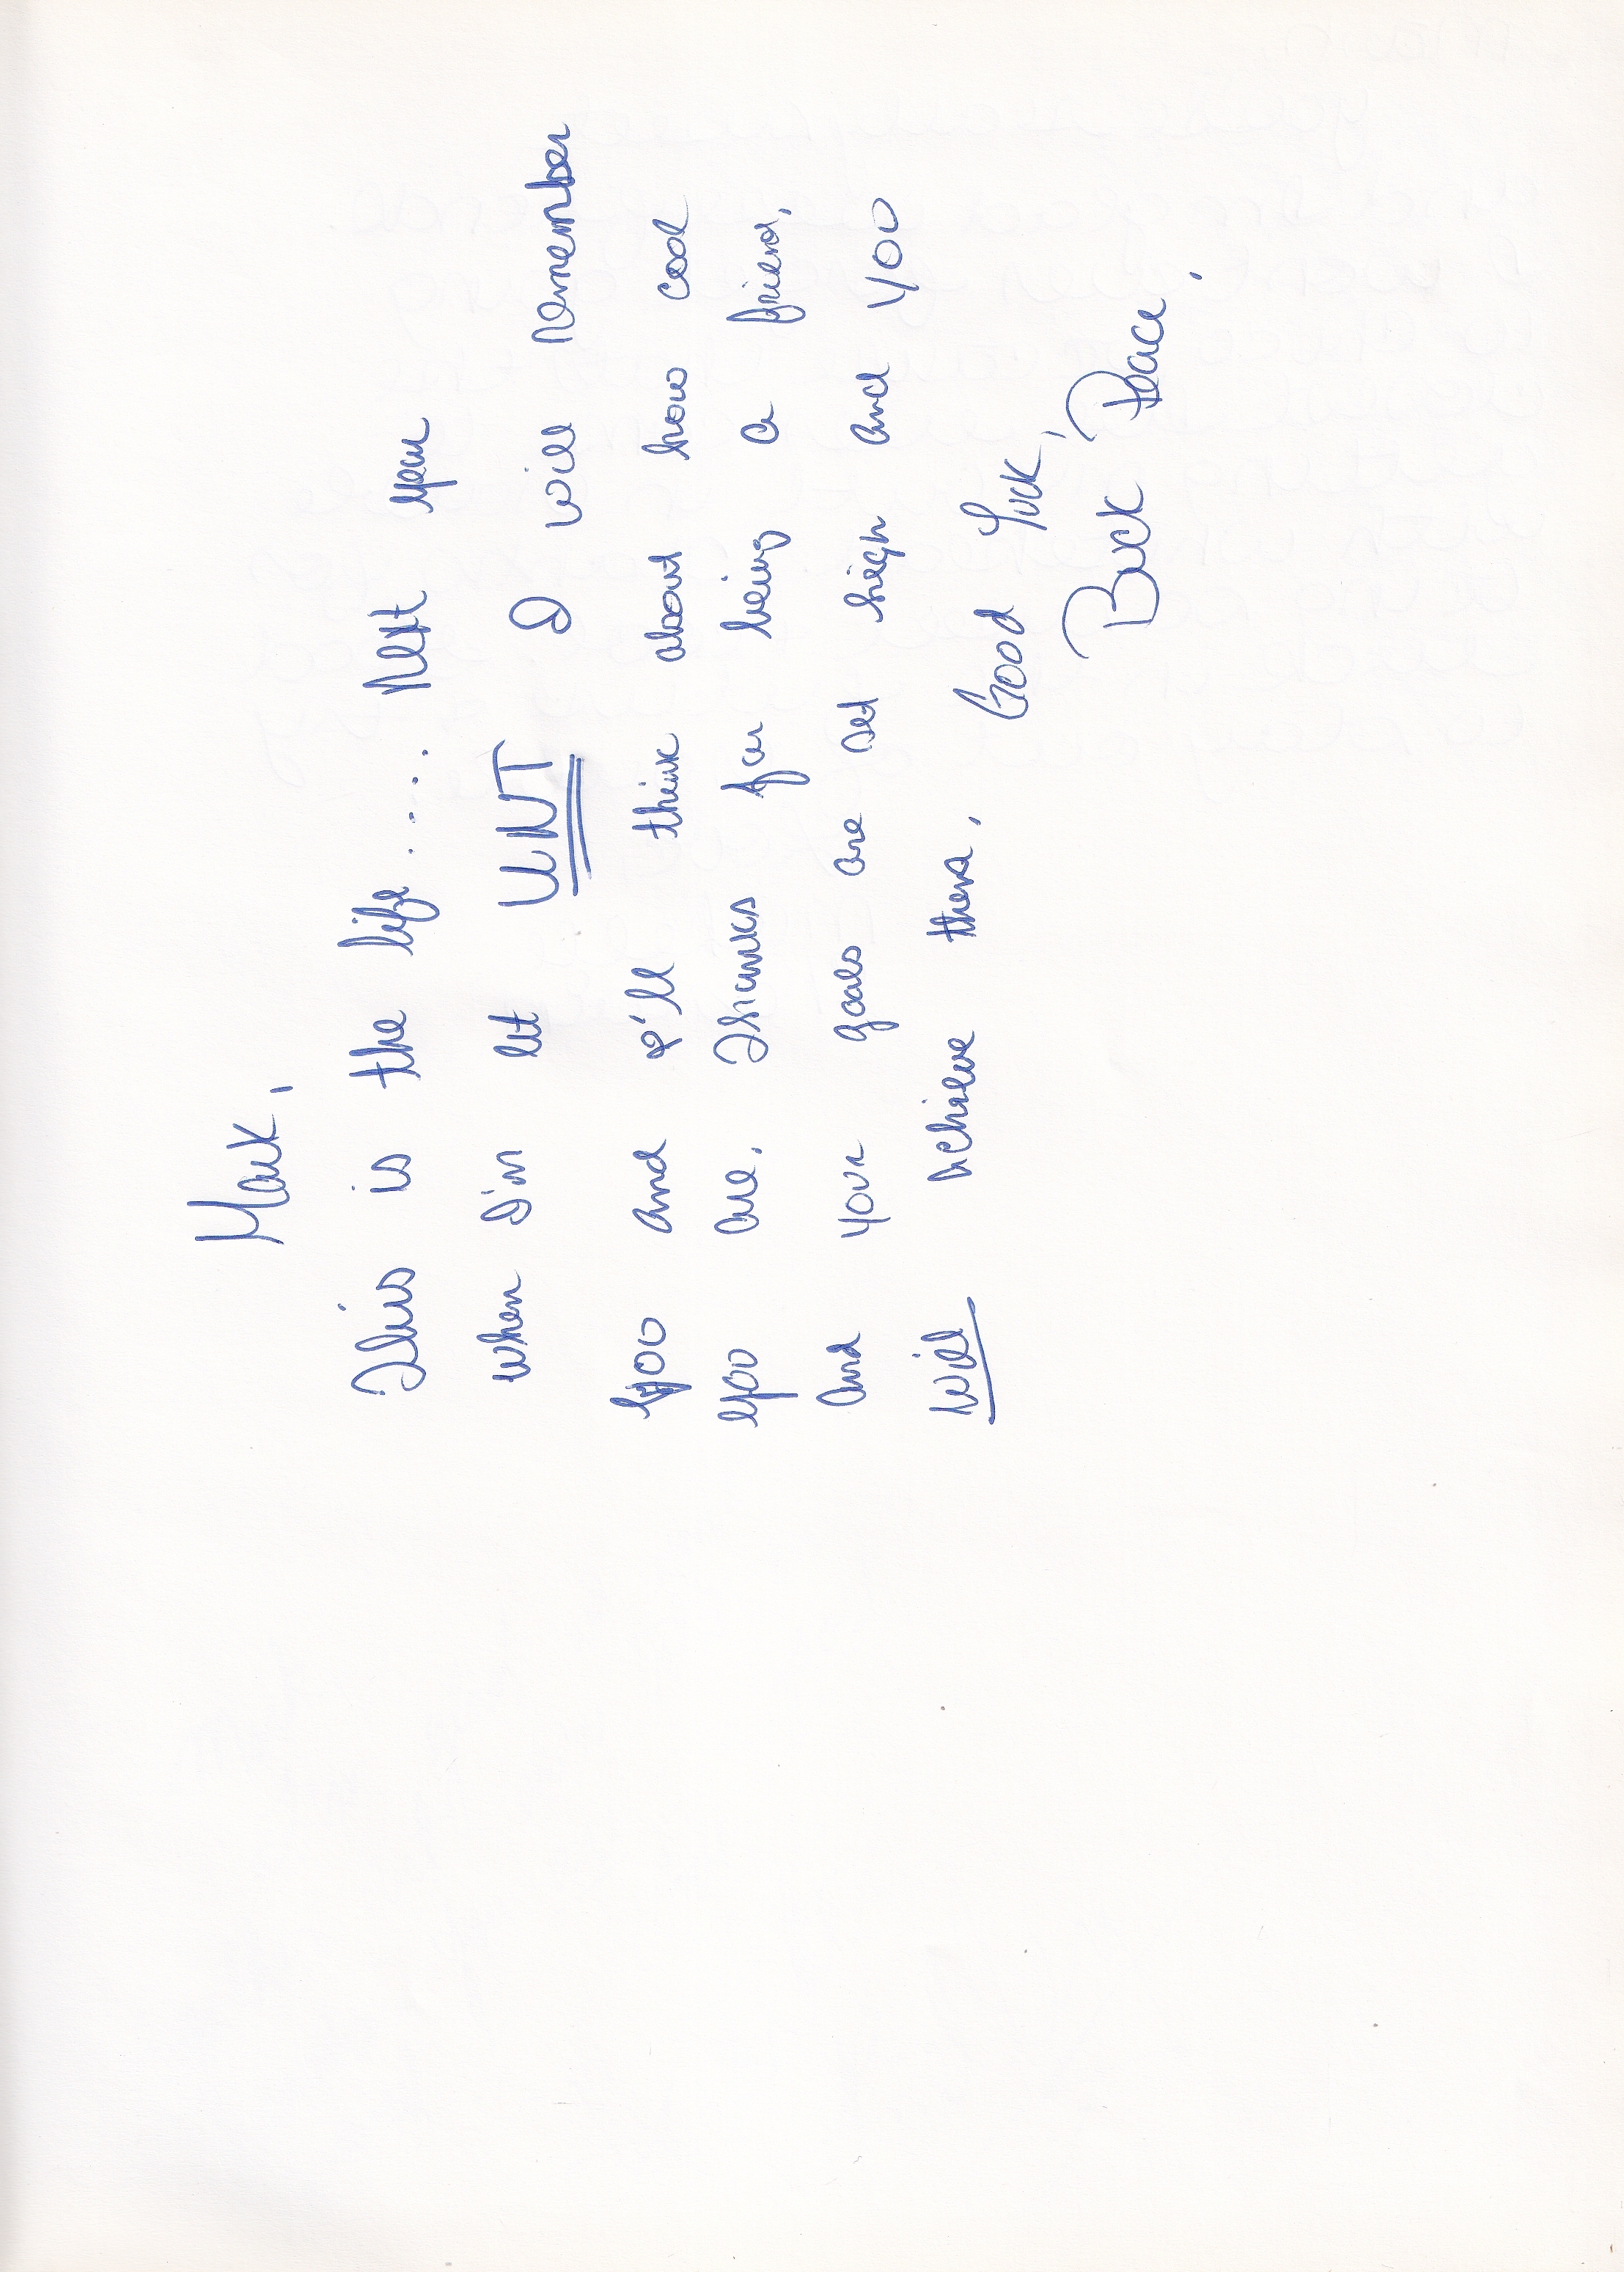 Mark,
This is the life..... Next year
when I'm at UNT I will remember
you and I'll think about how cool
you are. Thanks for being a friend,
and your goals are set high and you
will achieve them.
Good Luck,
Buck Peace,